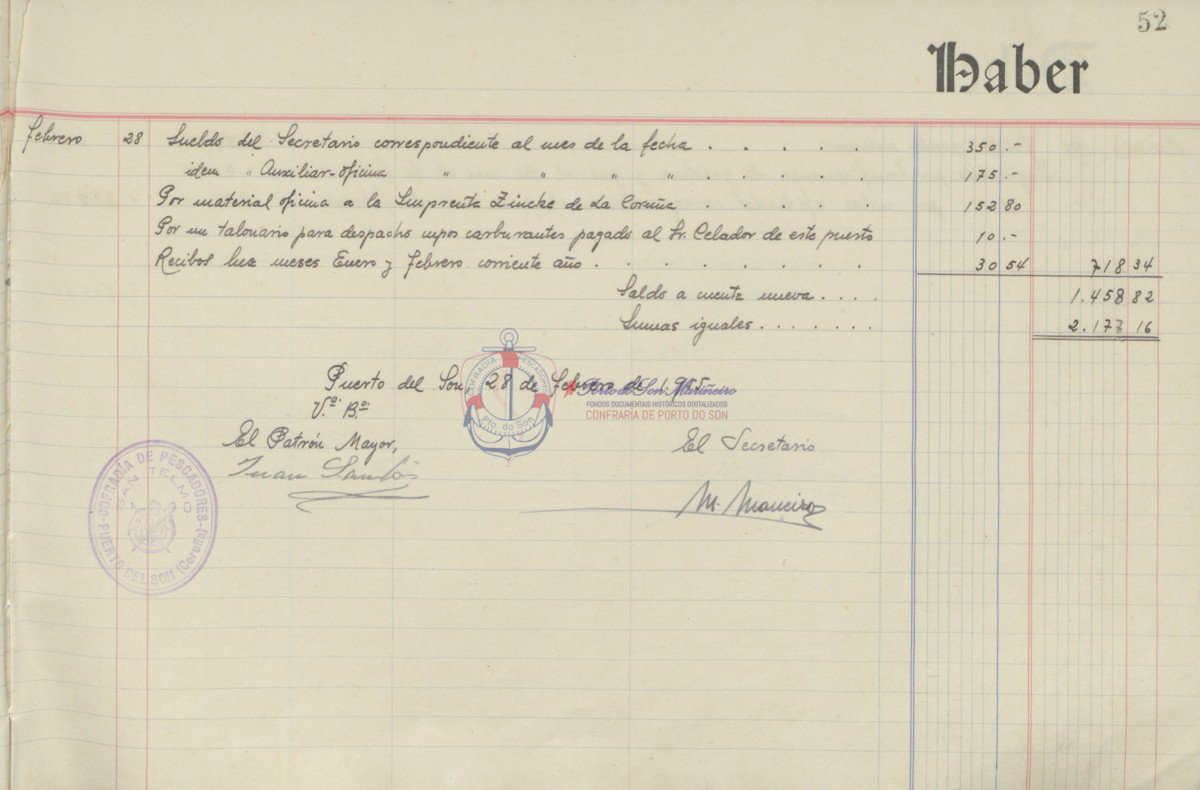 52
Haber
Febrero 28 Sueldo del Secretario correspondiente al mes de la fecha . . . . . 350 .-
idem " Auxiliar-oficina " " " " . . . . . 175 .-
Por material oficina a la Imprenta Zincke de La Coruña . . . . . 152 80
Por un talonario para despacho cupos carburantes pagado al Sr. Celador de este puerto 10 .-
Recibos luz meses Enero y Febrero corriente año . . . . . . . . 30 54 718 34
Saldo a cuenta nueva . . . . 1.458 82
Sumas iguales . . . . . . . 2.177 16
Puerto del Son, 28 de Febrero de 1.955
V.º B.º
El Patrón Mayor,
El Secretario
Juan Santos
M. Maneiro
COFRADÍA DE PESCADORES
SAN TELMO
PUERTO DEL SON (Coruña)
COFRADIA PESCADORES
Pto. do Son
Porto do Son: Mariñeiro
FONDOS DOCUMENTAIS HISTÓRICOS DIXITALIZADOS
CONFRARÍA DE PORTO DO SON